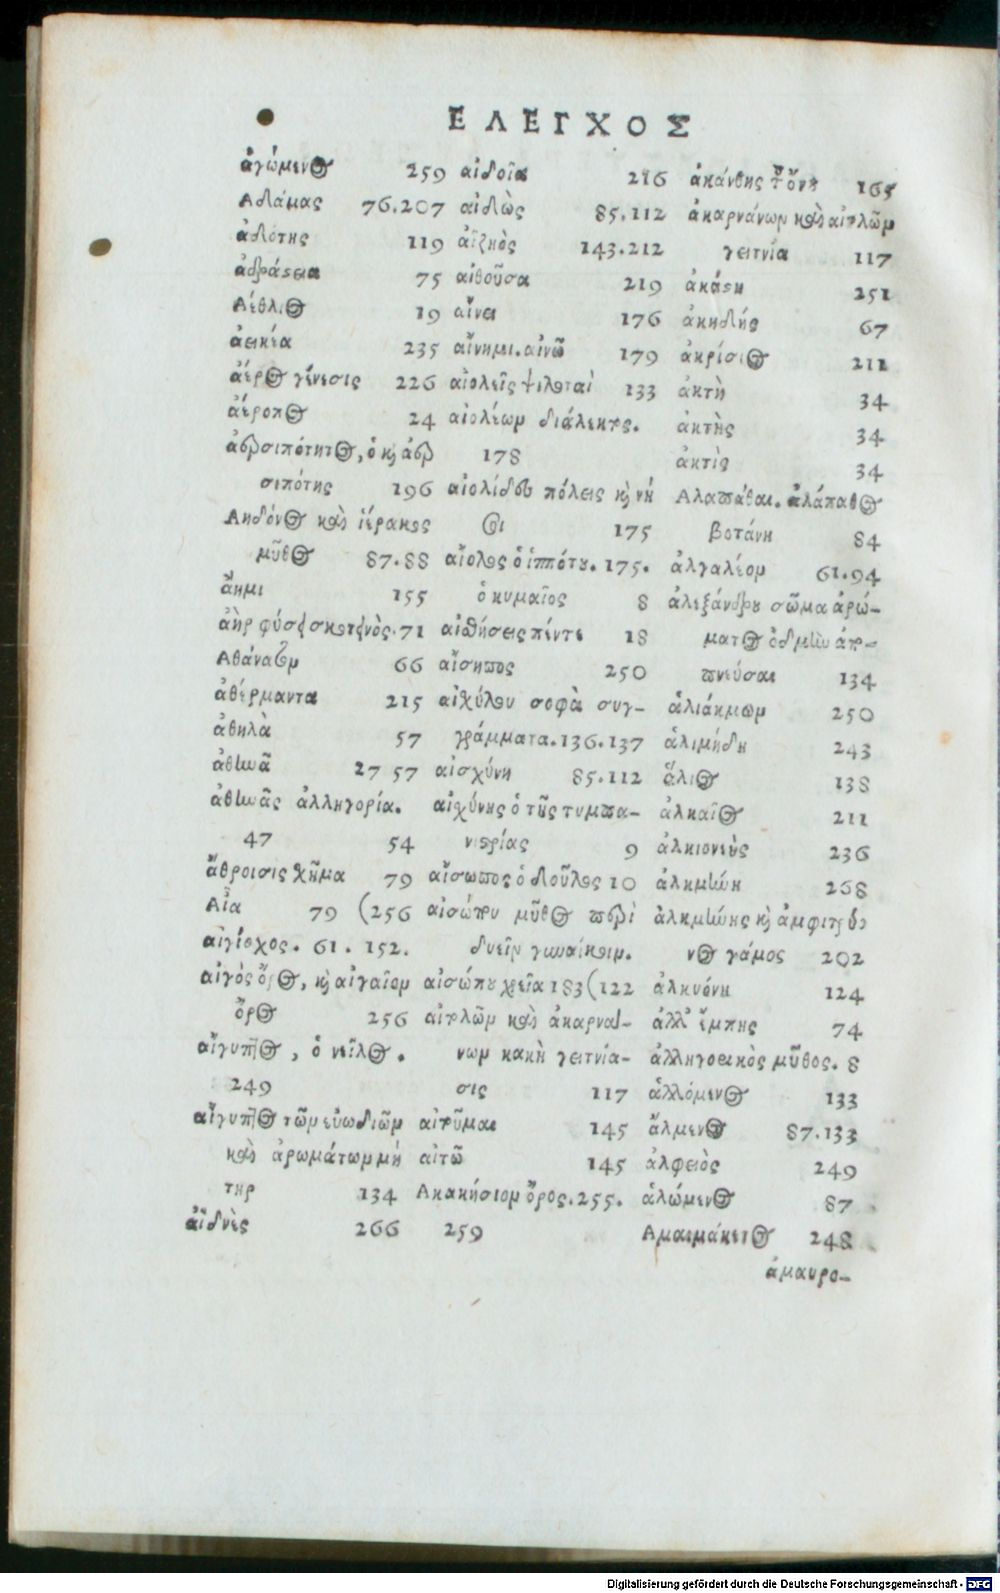 ΕΛΕΓΧΟΣ
ἀγώμενος 259
Αδάμας 76.207
ἀδότης 119
ἀδράστεια 75
Αέθλιος 19
ἀεικέα 235
ἀέρος γένεσις 226
ἀέροπος 24
σιπότης 196
Αηδόνος καὶ ἱέρακος
μῦθος 87.88
ἄημι 155
ἀὴρ φύσει σκοτεινὸς.71
66
ἀθέρμαντα 215
ἀθηλᾶ 57
ἀθηνᾶ 27 57
ἀθηνᾶς ἀλληγορία.
47 54
ἄθροισις χῆμα 79
Αἶα 79 (256
αἰγίοχος. 61. 152.
αἰγὸς ὄρος, καὶ αἰγαῖον
ὄρος 256
αἴγυπτος, ὁ νεῖλος.
249
αἴγυπτος τῶν εὐωδιῶν
καὶ ἀρωμάτων μή
τηρ 134
ἀϊδνὲς 266
αἰδοῖα 216
αἰδὼς 85.112
ἀϊζηὸς 143.212
αἰθοῦσα 219
αἴνει 176
αἴνημι. αἰνῶ 179
αἰολεῖς ψιλωταὶ 133
αἰολέων διάλεκτος.
178
αἰολίδου πόλεις καὶ νῆ
σοι 175
αἴολος ὁ ἱππότου. 175.
ὁ κυμαῖος 8
αἰσθήσεις πέντε 18
αἴσηπος 250
αἰσχύλου σοφὰ συγ-
γράμματα. 136.137
αἰσχύνη 85.112
αἰσχύνης ὁ τῆς τυμπα-
νιστρίας 9
αἴσωπος ὁ δοῦλος 10
αἰσώπου μῦθος περὶ
δυεῖν γυναίκοιν.
αἰσώπου χρεία 183 (122
αἰτωλῶν καὶ ἀκαρνά-
νων κακὴ γειτνία-
σις 117
145
αἰτῶ 145
Ακακήσιον ὄρος. 255.
259
ἀκάνθης 165
ἀκαρνάνων καὶ αἰτωλῶν
γειτνία 117
ἀκάστη 251
ἀκηδής 67
ἀκρίσιος 211
ἀκτὴ 34
ἀκτῆς 34
ἀκτὶς 34
Αλαπάθαι. ἀλάπαθος
βοτάνη 84
ἀλγαλέον 61.94
ἀλεξάνδρου σῶμα ἀρώ-
ματος ὀδμὴν ἀπο-
πνεῦσαι 134
ἁλιάκμων 250
ἁλιμήδη 243
ἅλιος 138
ἀλκαῖος 211
ἀλκιονεὺς 236
ἀλκμήνη 268
ἀλκμήνης καὶ ἀμφιτρύω
νος γάμος 202
ἀλκυόνη 124
ἀλλ’ ἔμπης 74
ἀλληγορικὸς μῦθος. 8
ἁλλόμενος 133
ἄλμενος 87.133
ἀλφειὸς 249
ἁλώμενος 87
Αμαιμάκετος 248
ἀμαυρο-
Digitalisierung gefördert durch die Deutsche Forschungsgemeinschaft - DFG